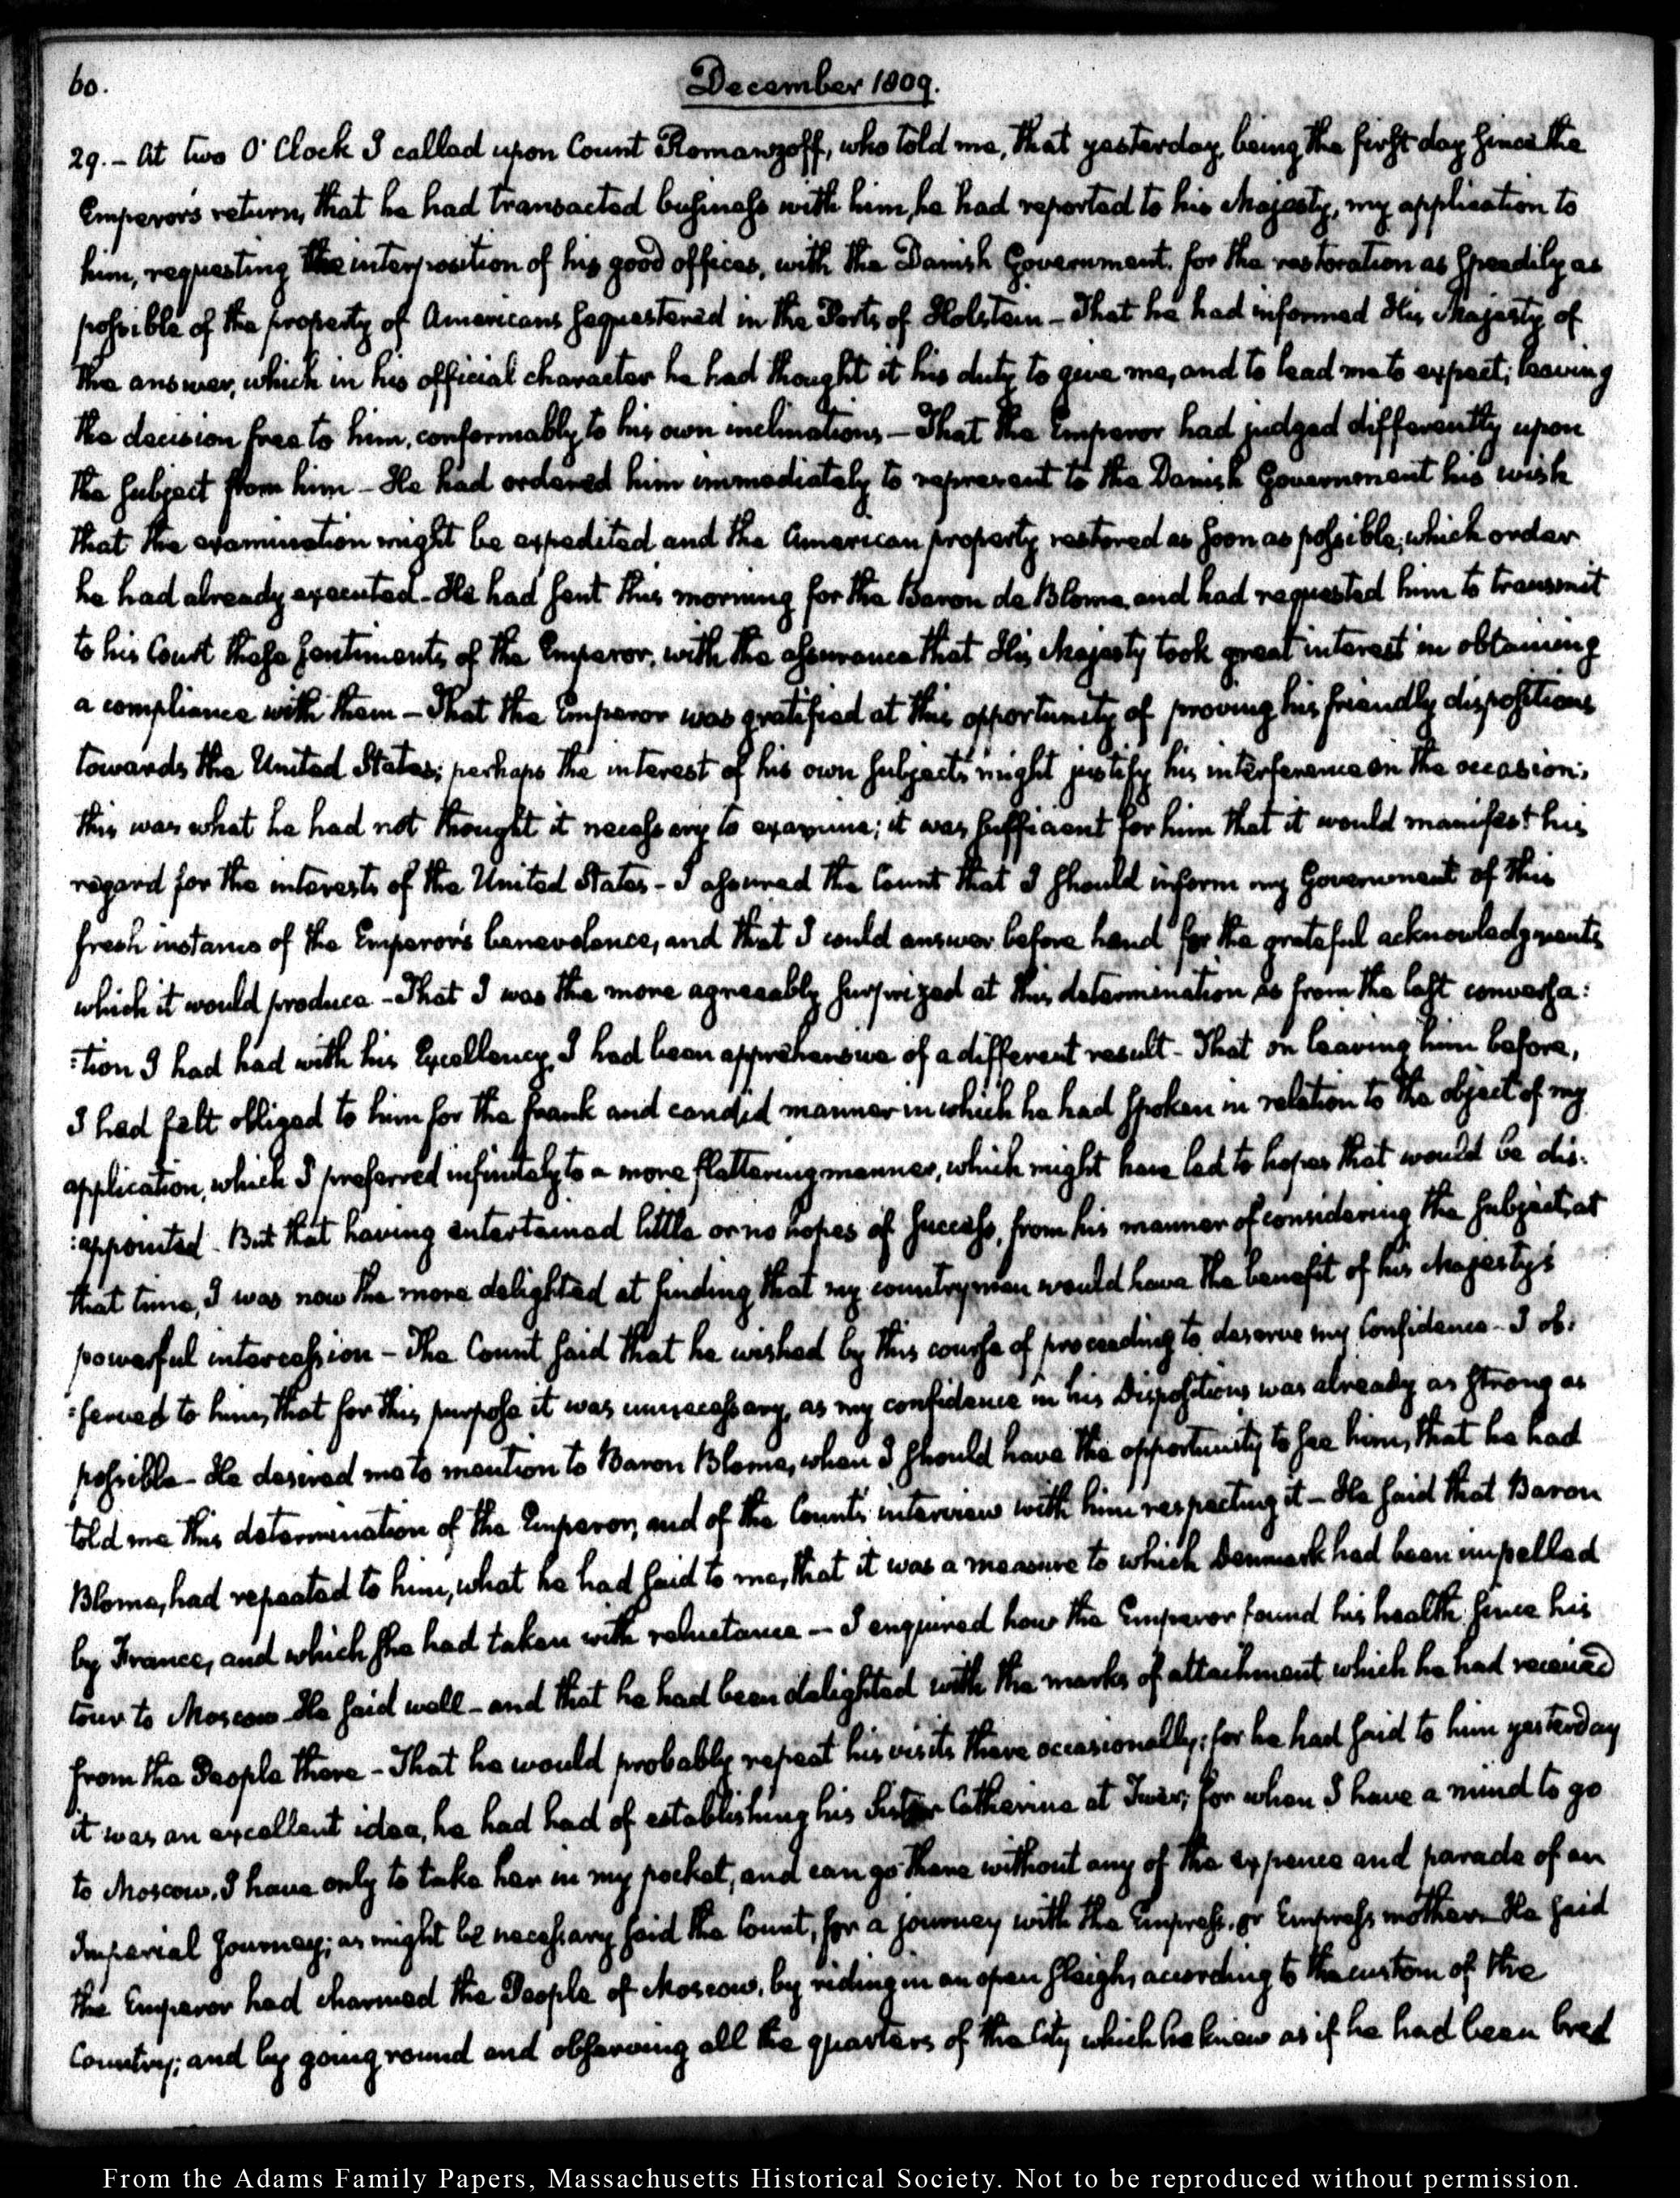 60.
December 1809.
29. - At two O'Clock I called upon Count Romanzoff, who told me, that yesterday, being the first day since the
Emperor's return, that he had transacted business with him, he had reported to his Majesty, my application to
him, requesting the interposition of his good offices, with the Danish Government, for the restoration as speedily as
possible of the property of Americans sequestered in the Ports of Holstein - That he had informed His Majesty of
the answer, which in his official character he had thought it his duty to give me, and to lead me to expect; leaving
the decision free to him, conformably to his own inclinations - That the Emperor had judged differently upon
the subject from him - He had ordered him immediately to represent to the Danish Government his wish
that the examination might be expedited and the American property restored as soon as possible; which order
he had already executed - He had sent this morning for the Baron de Blome, and had requested him to transmit
to his Court these sentiments of the Emperor, with the assurance that His Majesty took great interest in obtaining
a compliance with them - That the Emperor was gratified at this opportunity of proving his friendly dispositions
towards the United States; perhaps the interest of his own subjects might justify his interference on the occasion;
this was what he had not thought it necessary to examine; it was sufficient for him that it would manifest his
regard for the interests of the United States - I assured the Count that I should inform my Government of this
fresh instance of the Emperor's benevolence, and that I could answer before hand for the grateful acknowledgments
which it would produce - That I was the more agreeably surprized at this determination as from the last conversa:
:tion I had had with his Excellency, I had been apprehensive of a different result - That on leaving him before,
I had felt obliged to him for the frank and candid manner in which he had spoken in relation to the object of my
application, which I preferred infinitely to a more flattering manner, which might have led to hopes that would be dis:
:appointed. But that having entertained little or no hopes of success, from his manner of considering the subject, at
that time, I was now the more delighted at finding that my countrymen would have the benefit of his Majesty's
powerful intercession - The Count said that he wished by this course of proceeding to deserve my Confidence - I ob:
:served to him, that for this purpose it was unnecessary, as my confidence in his Dispositions was already as strong as
possible - He desired me to mention to Baron Blome, when I should have the opportunity to see him, that he had
told me this determination of the Emperor, and of the Count's interview with him respecting it - He said that Baron
Blome, had repeated to him, what he had said to me, that it was a measure to which Denmark had been impelled
by France, and which she had taken with reluctance - I enquired how the Emperor found his health since his
tour to Moscow - He said well - and that he had been delighted with the marks of attachment which he had received
from the People there - That he would probably repeat his visits there occasionally; for he had said to him yesterday
it was an excellent idea, he had had of establishing his Sister Catherine at Twer; for when I have a mind to go
to Moscow, I have only to take her in my pocket, and can go there without any of the expence and parade of an
Imperial Journey; as might be necessary said the Count, for a journey with the Empress, or Empress mother - He said
the Emperor had charmed the People of Moscow, by riding in an open sleigh, according to the custom of the
Country; and by going round and observing all the quarters of the City which he knew as if he had been bred
From the Adams Family Papers, Massachusetts Historical Society. Not to be reproduced without permission.